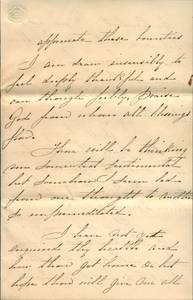 appreciate these beauties
I am drawn insensibly to
feel deeply thankful and
even though feebly, Praise
God from whom all blessings
flow.
Thou will be thinking
me somewhat sentimental
but somehow I seem led
from one thought to another
so unpremeditated.
I have not yet
enquired thy health and
how thou got home so but
hope thou will give me all